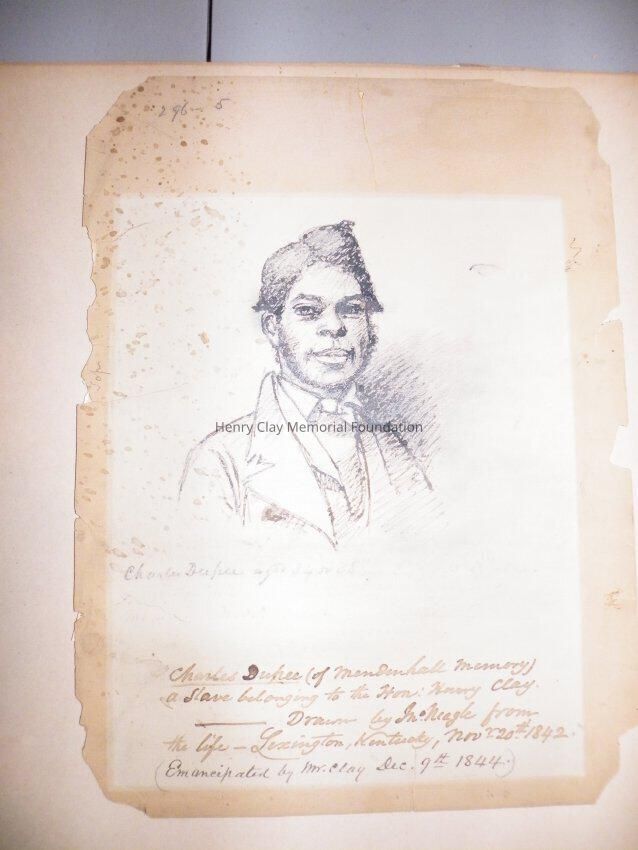 296-5
Henry Clay Memorial Foundation
Charles Dupee aged
Charles Dupee (of Mendenhall Memory)
a slave belonging to the Hon. Henry Clay.
Drawn by Jno. Neagle from
the life – Lexington, Kentucky, Novr. 20th 1842.
(Emancipated by Mr. Clay Dec. 9th 1844.)